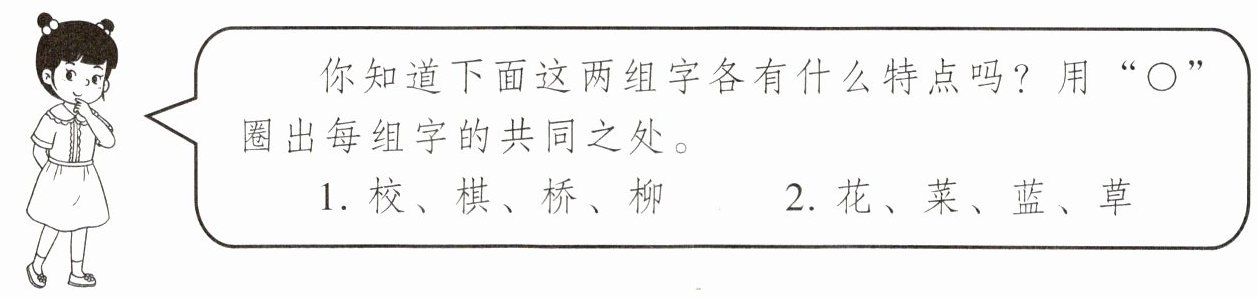 你知道下面这两组字各有什么特点吗？用“○”
圈出每组字的共同之处。
1. 校、棋、桥、柳 2. 花、菜、蓝、草